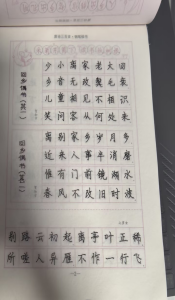 回乡偶书(其一)
少小离家老大回
乡音无改鬓毛衰
儿童相见不相识
笑问客从何处来
回乡偶书(其二)
离别家乡岁月多
近来人事半消磨
惟有门前镜湖水
春风不改旧时波
别路云初起离亭叶正稀
所嗟人异雁不作一行飞